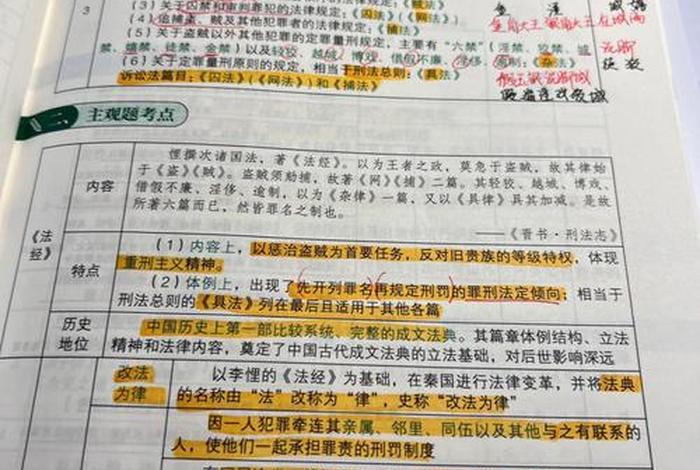 (3)关于囚禁和审判罪犯的法律规定:《囚法》(《网法》)
3
(4)追捕盗、贼及其他犯罪者的法律规定:《捕法》
(5)关于盗贼以外其他犯罪的定罪量刑规定,主要有“六禁”(淫禁、狡禁、城
禁、嬉禁、徒禁、金禁)以及轻狡、越城、博戏、借假不廉、淫侈、逾制:《杂法》
(6)关于定罪量刑原则的规定,相当于刑法总则:《具法》
诉讼法篇目:《囚法》(《网法》)和《捕法》
二、主观题考点
《法经》
内容
悝撰次诸国法,著《法经》。以为王者之政,莫急于盗贼,故其律始
于《盗》《贼》。盗贼须劾捕,故著《网》《捕》二篇。其轻狡、越城、博戏、
借假不廉、淫侈、逾制,以为《杂律》一篇,又以《具律》具其加减。是故
所著六篇而已,然皆罪名之制也。
——《晋书·刑法志》
特点
(1)内容上,以惩治盗贼为首要任务,反对旧贵族的等级特权,体现
重刑主义精神。
(2)体例上,出现了先开列罪名再规定刑罚的罪刑法定倾向;相当于
刑法总则的《具法》列在最后且适用于其他各篇
历史
地位
中国历史上第一部比较系统、完整的成文法典。其篇章体例结构、立法
精神和法律内容,奠定了中国古代成文法典的立法基础,对后世影响深远
改法
为律
以李悝的《法经》为基础,在秦国进行法律变革,并将法典
的名称由“法”改称为“律”,史称“改法为律”
因一人犯罪牵连其亲属、邻里、同伍以及其他与之有联系的
人,使他们一起承担罪责的刑罚制度